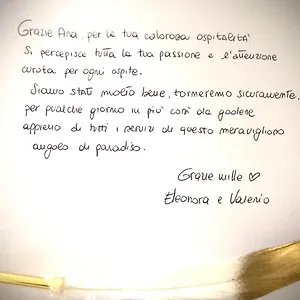 Grazie Ana, per la tua calorosa ospitalità
Si percepisce tutta la tua passione e l'attenzione
curata per ogni ospite.
Siamo stati molto bene, torneremo sicuramente,
per qualche giorno in più così da godere
appieno di tutti i servizi di questo meraviglioso
angolo di paradiso.
Grazie mille ♡
Eleonora e Valerio